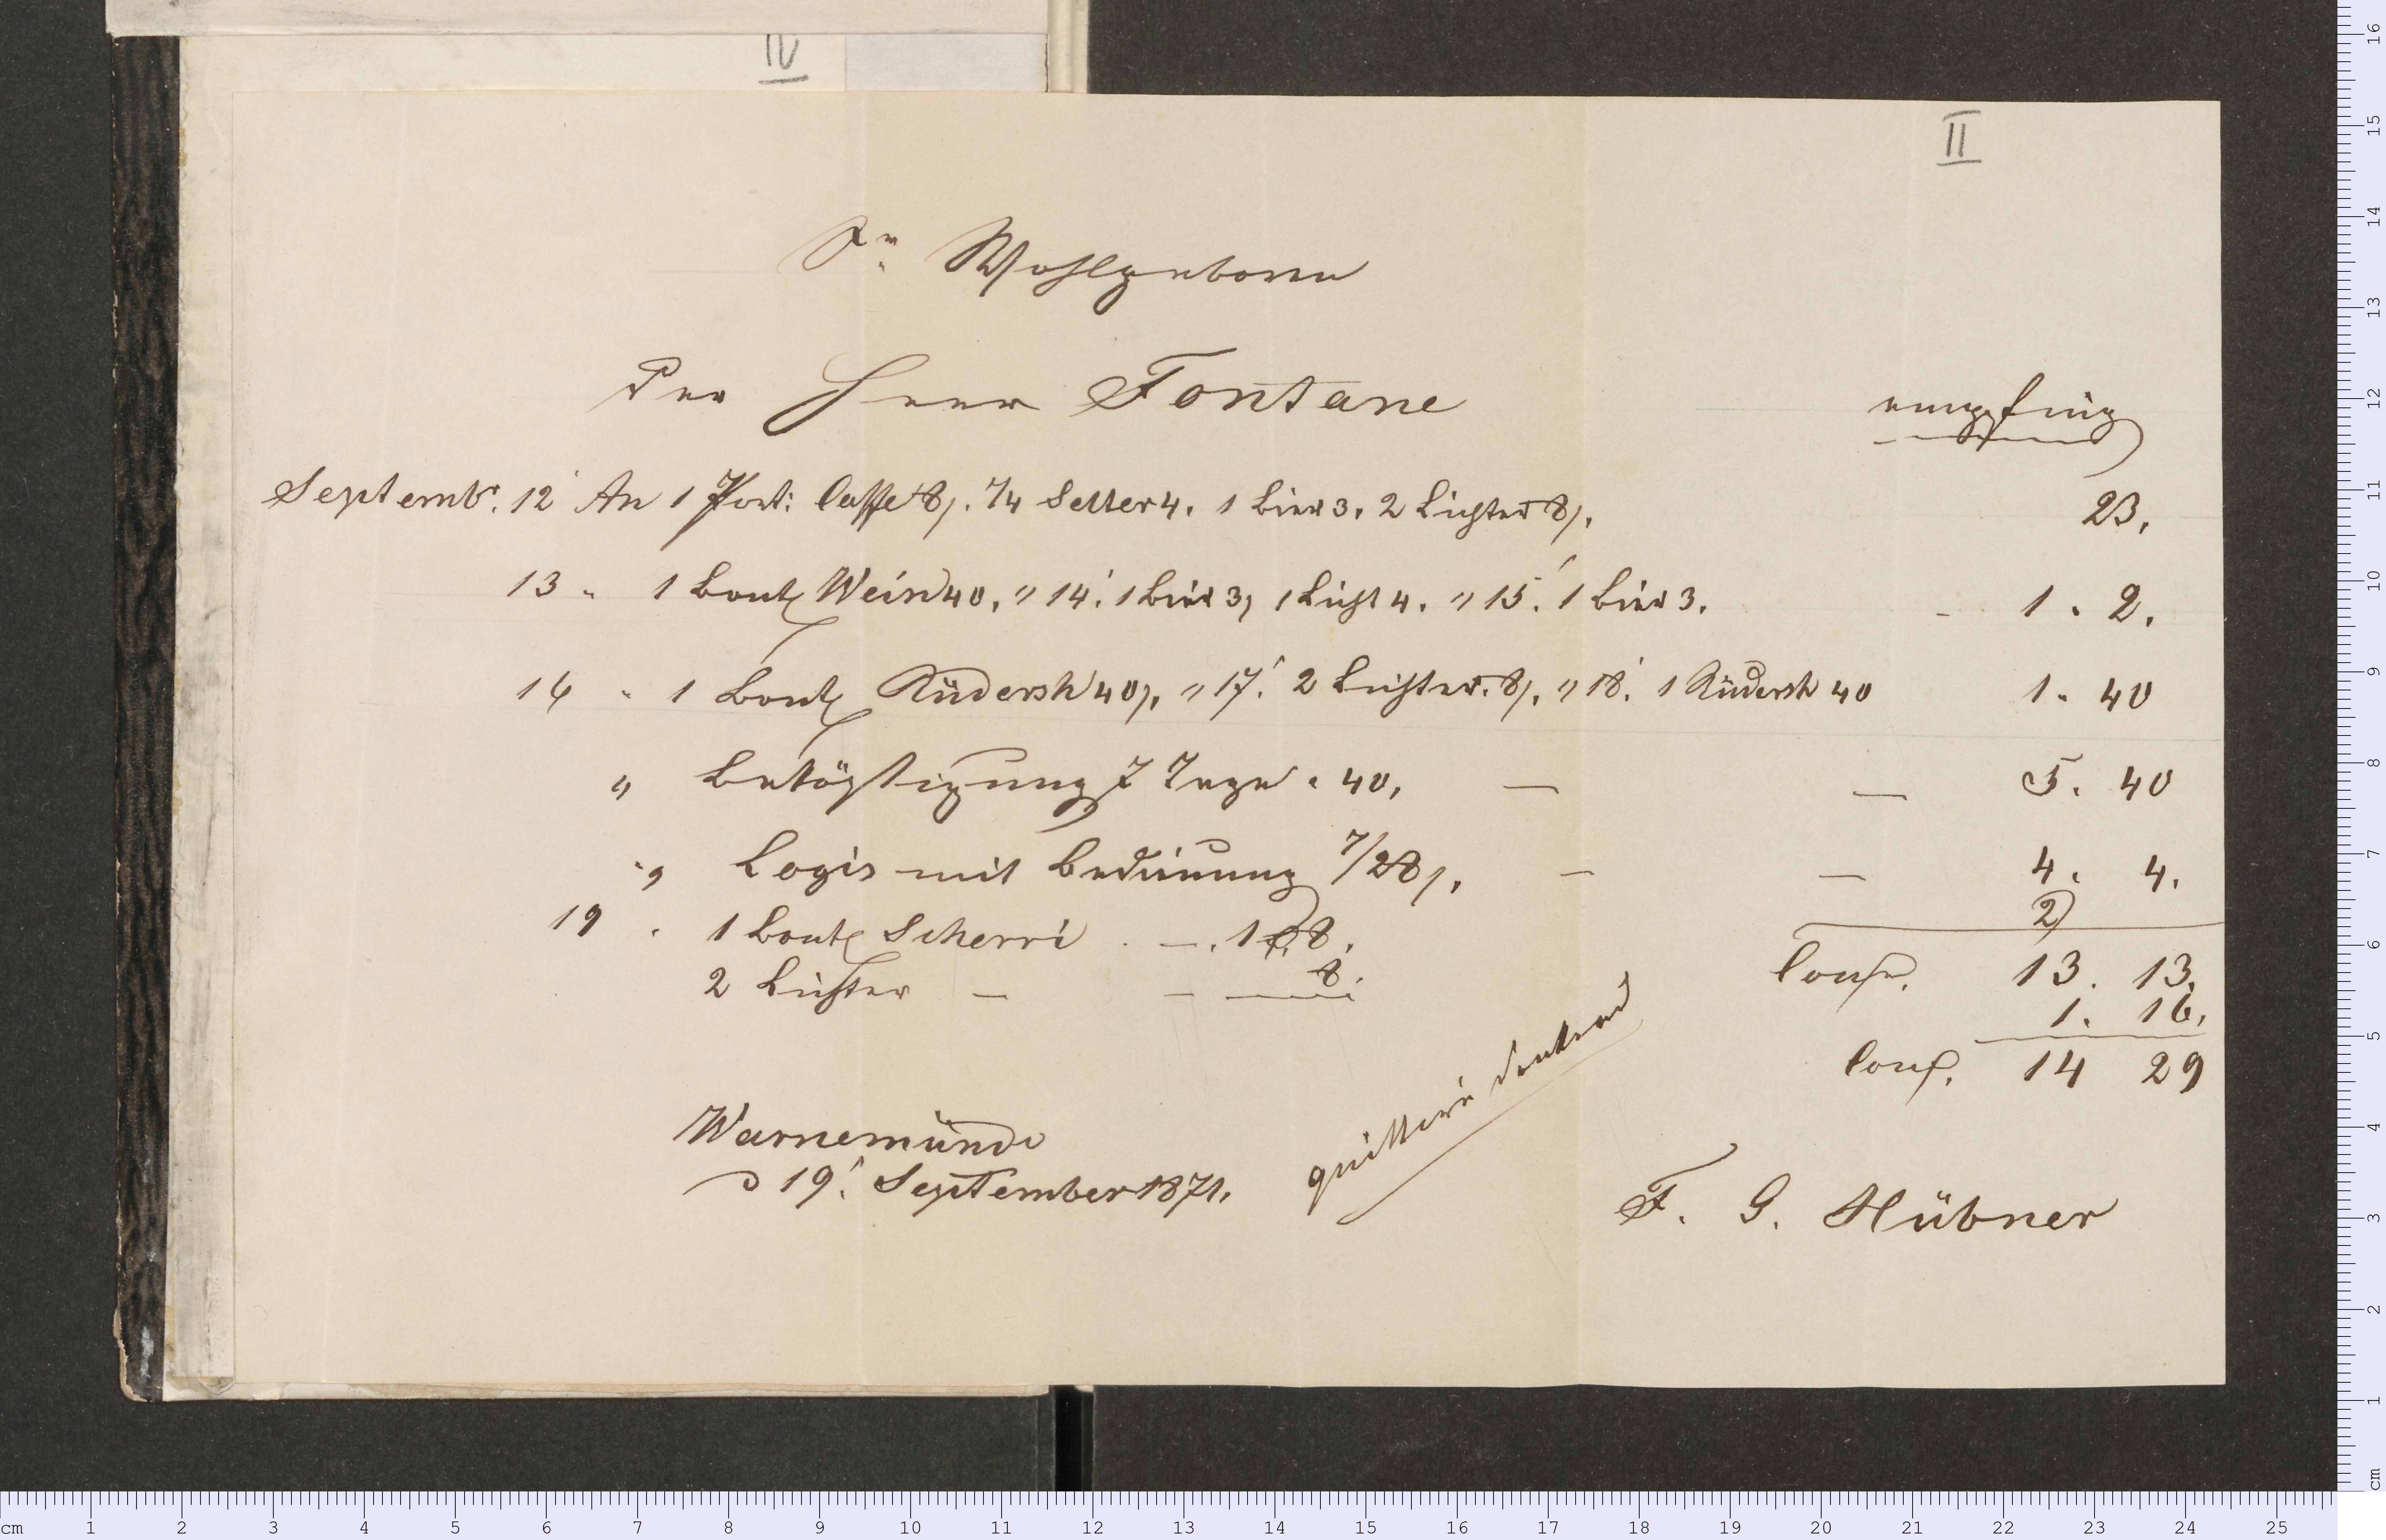 IV
II
Sr. Wohlgeboren
Der Herr Fontane
empfing
Septembr. 12 An 1 Port: Caffe 8ß. 1/4 Selter 4. 1 Bier 3. 2 Lichter 8ß. 23.
13 " 1 Bout Wein 40, " 14. 1 Bier 3, 1 Licht 4. " 15. 1 Bier 3. 1. 2.
16 " 1 Bout Rüdersh 40ß, " 17. 2 Lichter. 8ß, " 18. 1 Rüdersh 40 1. 40
" Beköstigung 7 Tage " 40, — — 5. 40
" Logis mit Bedienung 7/28ß. — — 4. 4.
2)
19 " 1 Bout Scherri . — . 1 8.
Cour. 13. 13.
2 Lichter — — 8.
1. 16.
Cour. 14 29
quittirt dankend
Warnemünde
d 19. September 1871.
F. G. Hübner